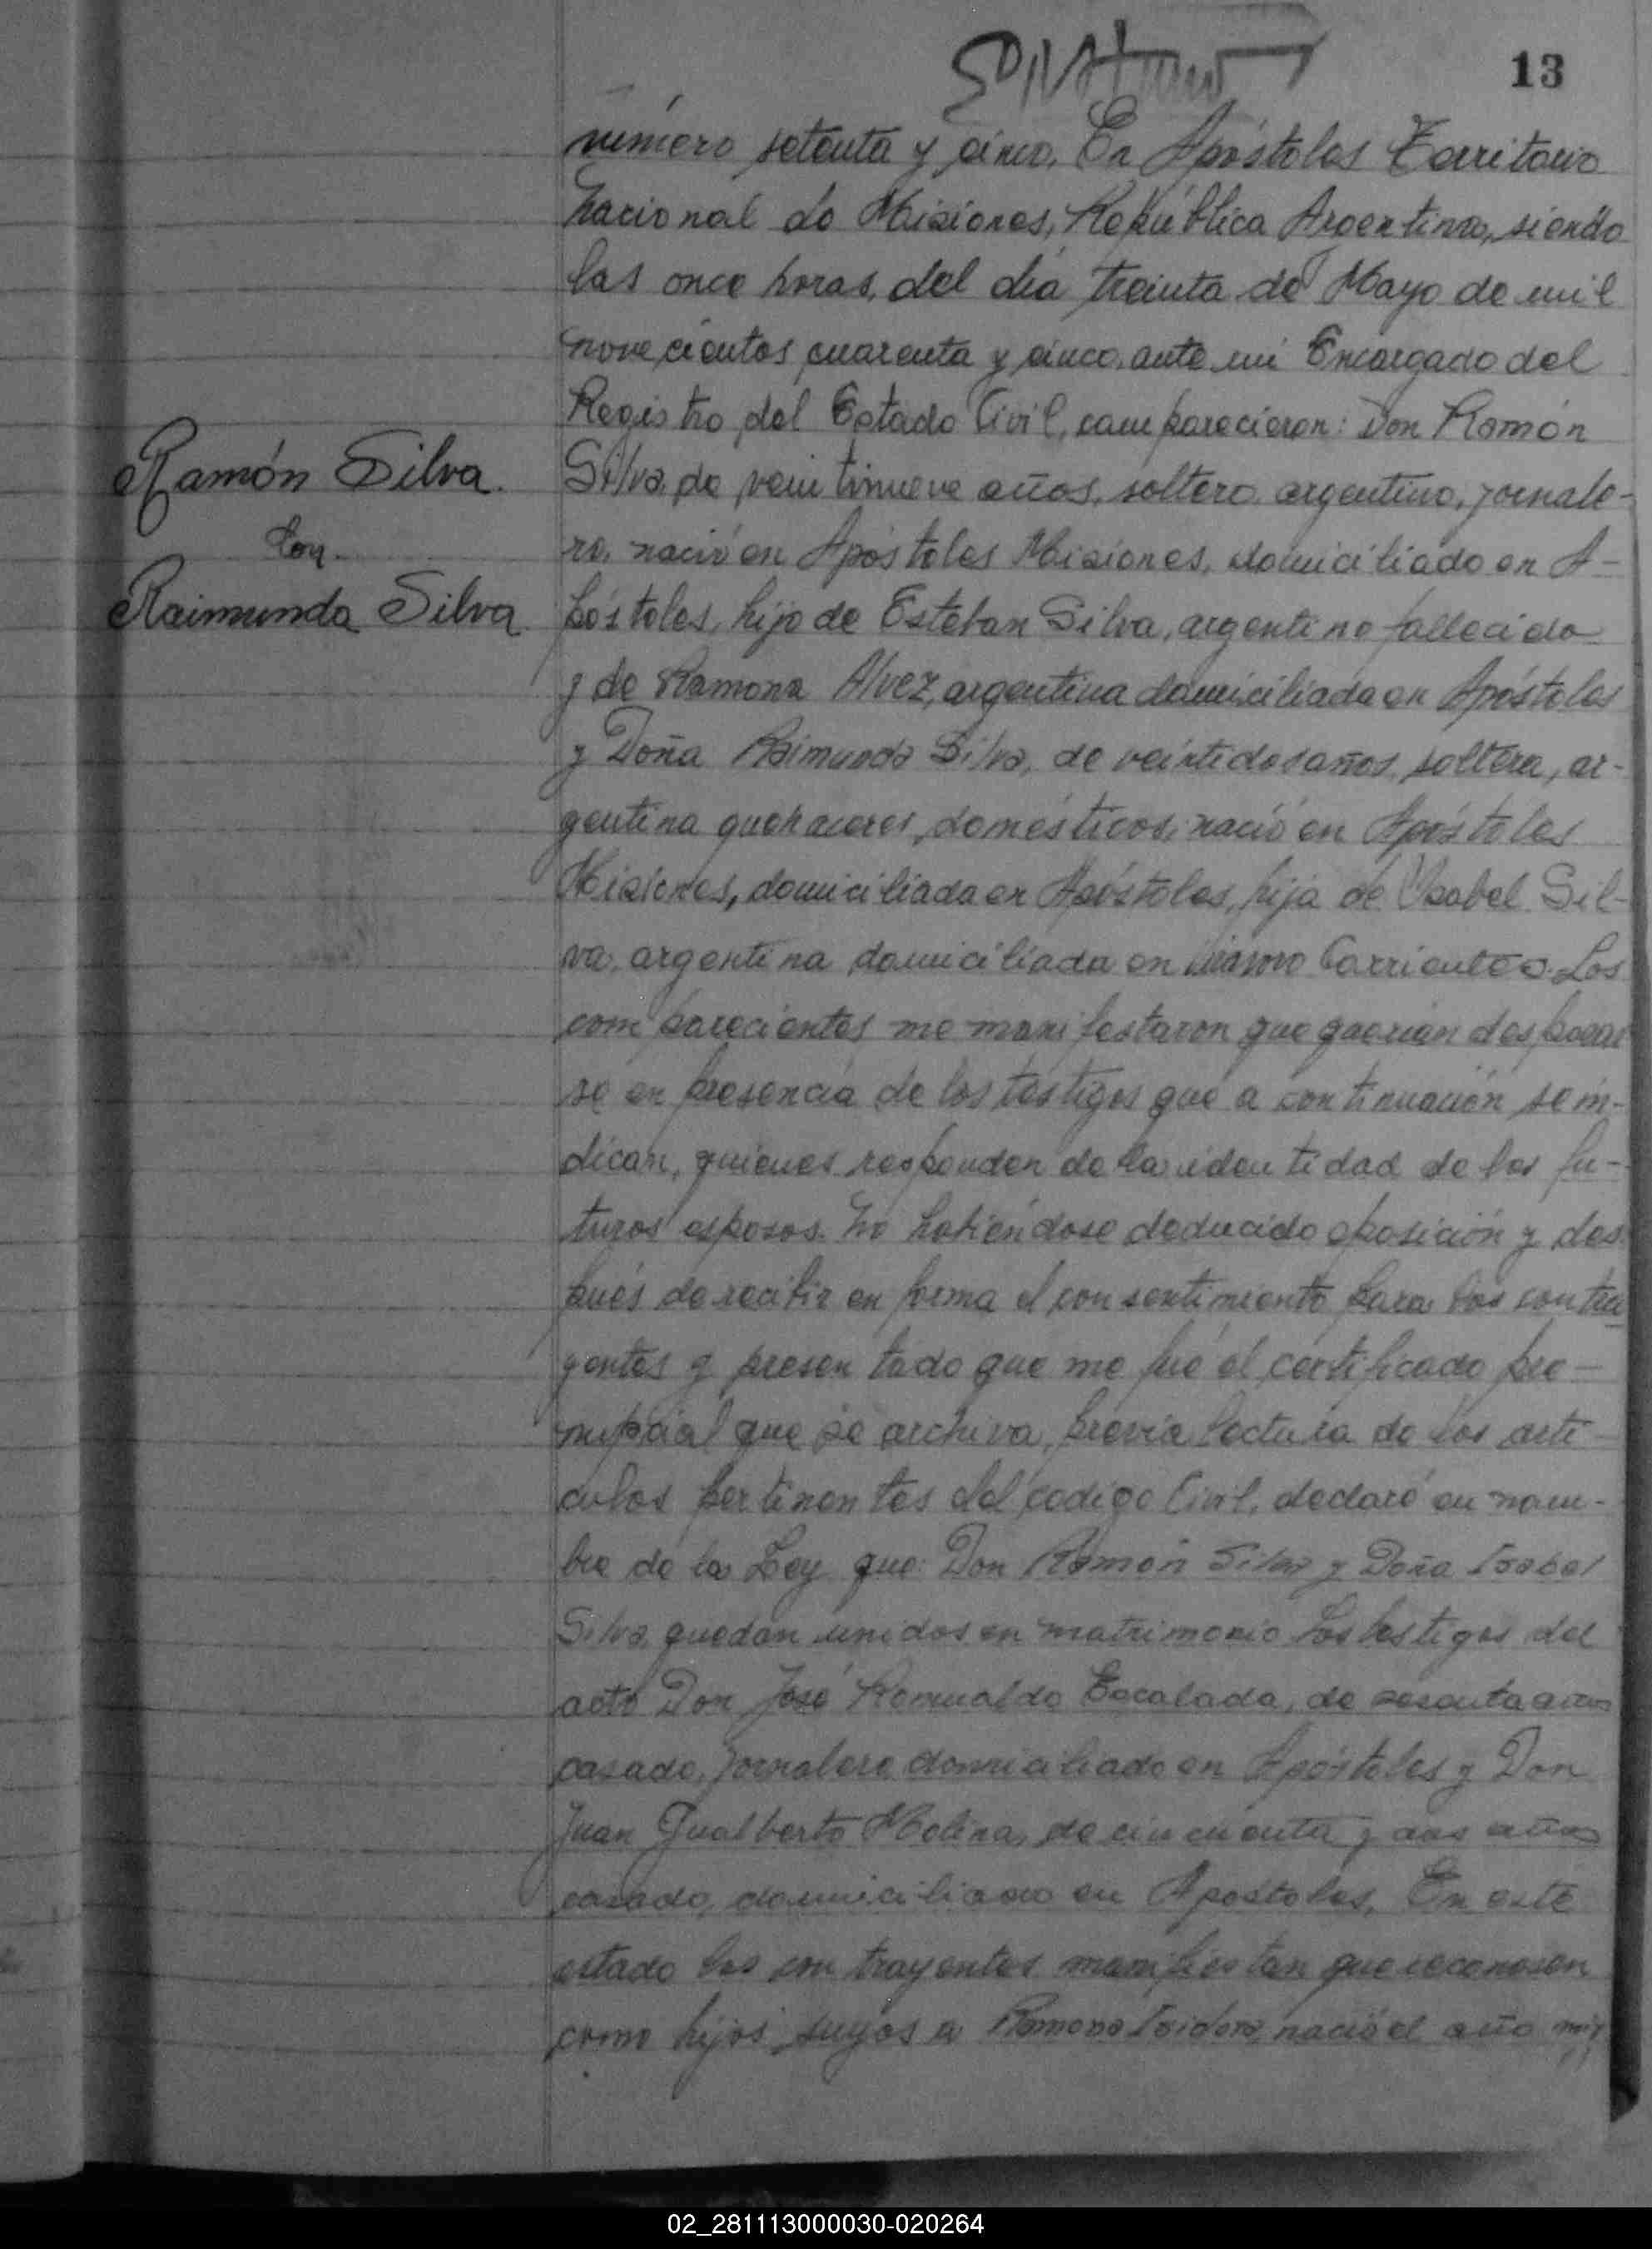 13
número setenta y cinco. En Apóstoles Territorio
Nacional de Misiones, República Argentina, siendo
las once horas, del día treinta de Mayo de mil
novecientos cuarenta y cinco, ante mi Encargado del
Registro del Estado Civil, comparecieron: Don Ramón
Ramón Silva.
con
Raimunda Silva
Silva, de veintinueve años, soltero, argentino, jornale-
ro, nació en Apóstoles Misiones, domiciliado en A-
póstoles, hijo de Esteban Silva, argentino fallecido
y de Ramona Alvez, argentina domiciliada en Apóstoles
y Doña Raimunda Silva, de veintidos años, soltera, ar-
gentina quehaceres domésticos, nació en Apóstoles
Misiones, domiciliada en Apóstoles, hija de Ysabel Sil-
va, argentina domiciliada en Corrientes. Los
comparecientes me manifestaron que querían desposar
se en presencia de los testigos que a continuación se in-
dican, quienes responden de la identidad de los fu-
turos esposos. No habiéndose deducido oposición y des
pués de recibir en forma el consentimiento para los contra
yentes y presentado que me fué el certificado pre-
nupcial que se archiva, previa lectura de los artí-
culos pertinentes del código Civil, declaré en nom-
bre de la Ley que: Don Ramón Silva y Doña Isabel
Silva, quedan unidos en matrimonio Los testigos del
acto Don José Romualdo Escalada, de sesenta años
casado, jornalero domiciliado en Apóstoles y Don
Juan Gualberto Molina, de cincuenta y dos años
casado, domiciliado en Apóstoles, En este
estado los contrayentes manifiestan que reconocen
como hijos suyos a Ramona Isidora, nació el año mil
02_281113000030-020264